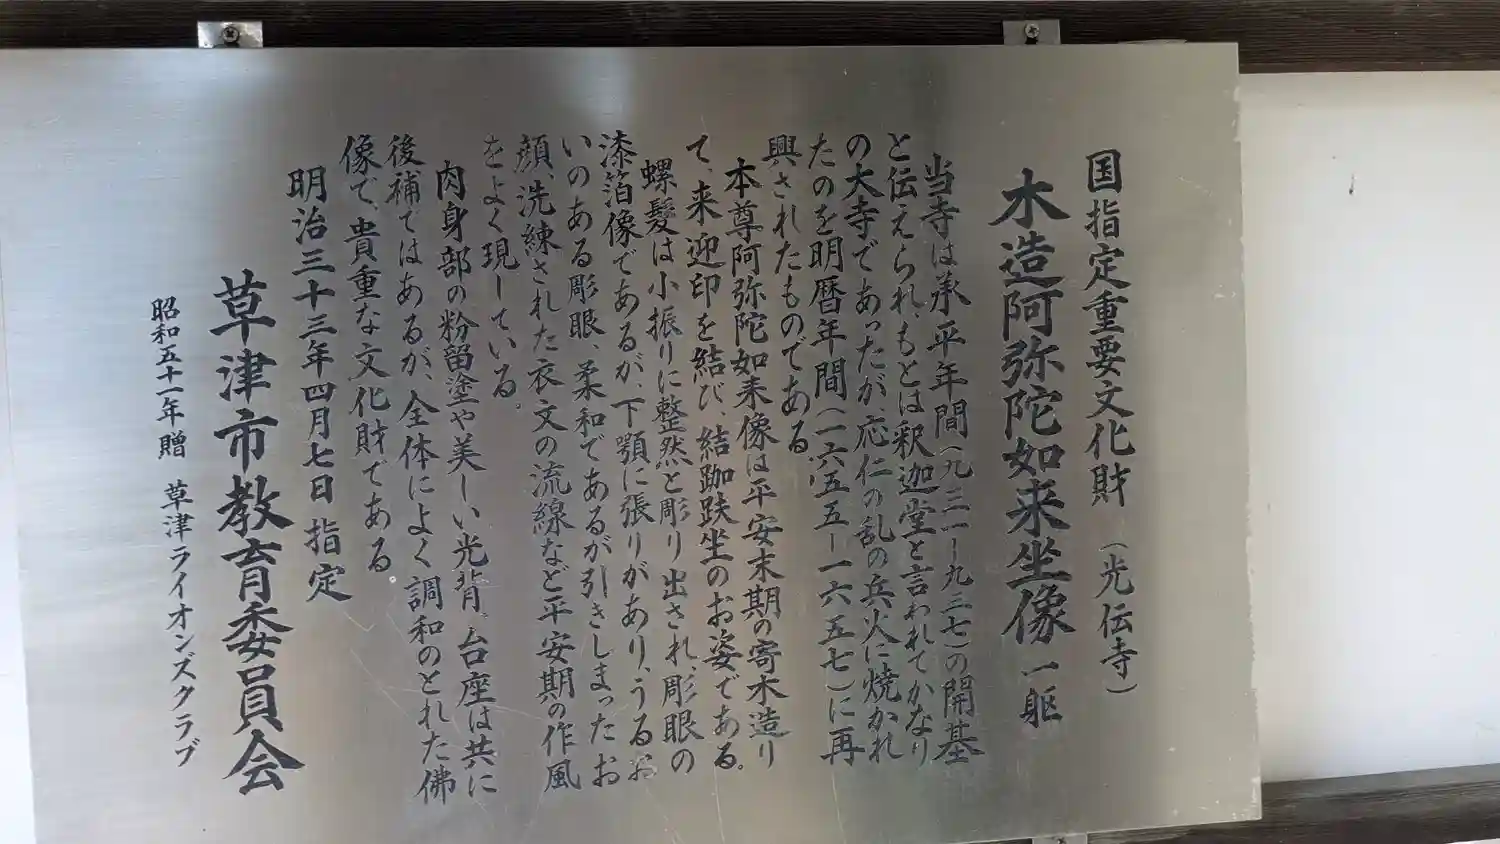 国指定重要文化財（光伝寺）
木造阿弥陀如来坐像一躯
当寺は承平年間（九三一ー九三七）の開基
と伝えられ、もとは釈迦堂と言われてかなり
の大寺であったが、応仁の乱の兵火に焼かれ
たのを明暦年間（一六五五ー一六五七）に再
興されたものである。
本尊阿弥陀如来像は平安末期の寄木造り
で、来迎印を結び、結跏趺坐のお姿である。
螺髪は小振りに整然と彫り出され、彫眼の
漆箔像であるが、下顎に張りがあり、うるお
いのある彫眼、柔和であるが引きしまったお
顔、洗練された衣文の流線など平安期の作風
をよく現している。
肉身部の粉留塗や美しい光背、台座は共に
後補ではあるが、全体によく調和のとれた佛
像で、貴重な文化財である
明治三十三年四月七日指定
草津市教育委員会
昭和五十一年贈　草津ライオンズクラブ